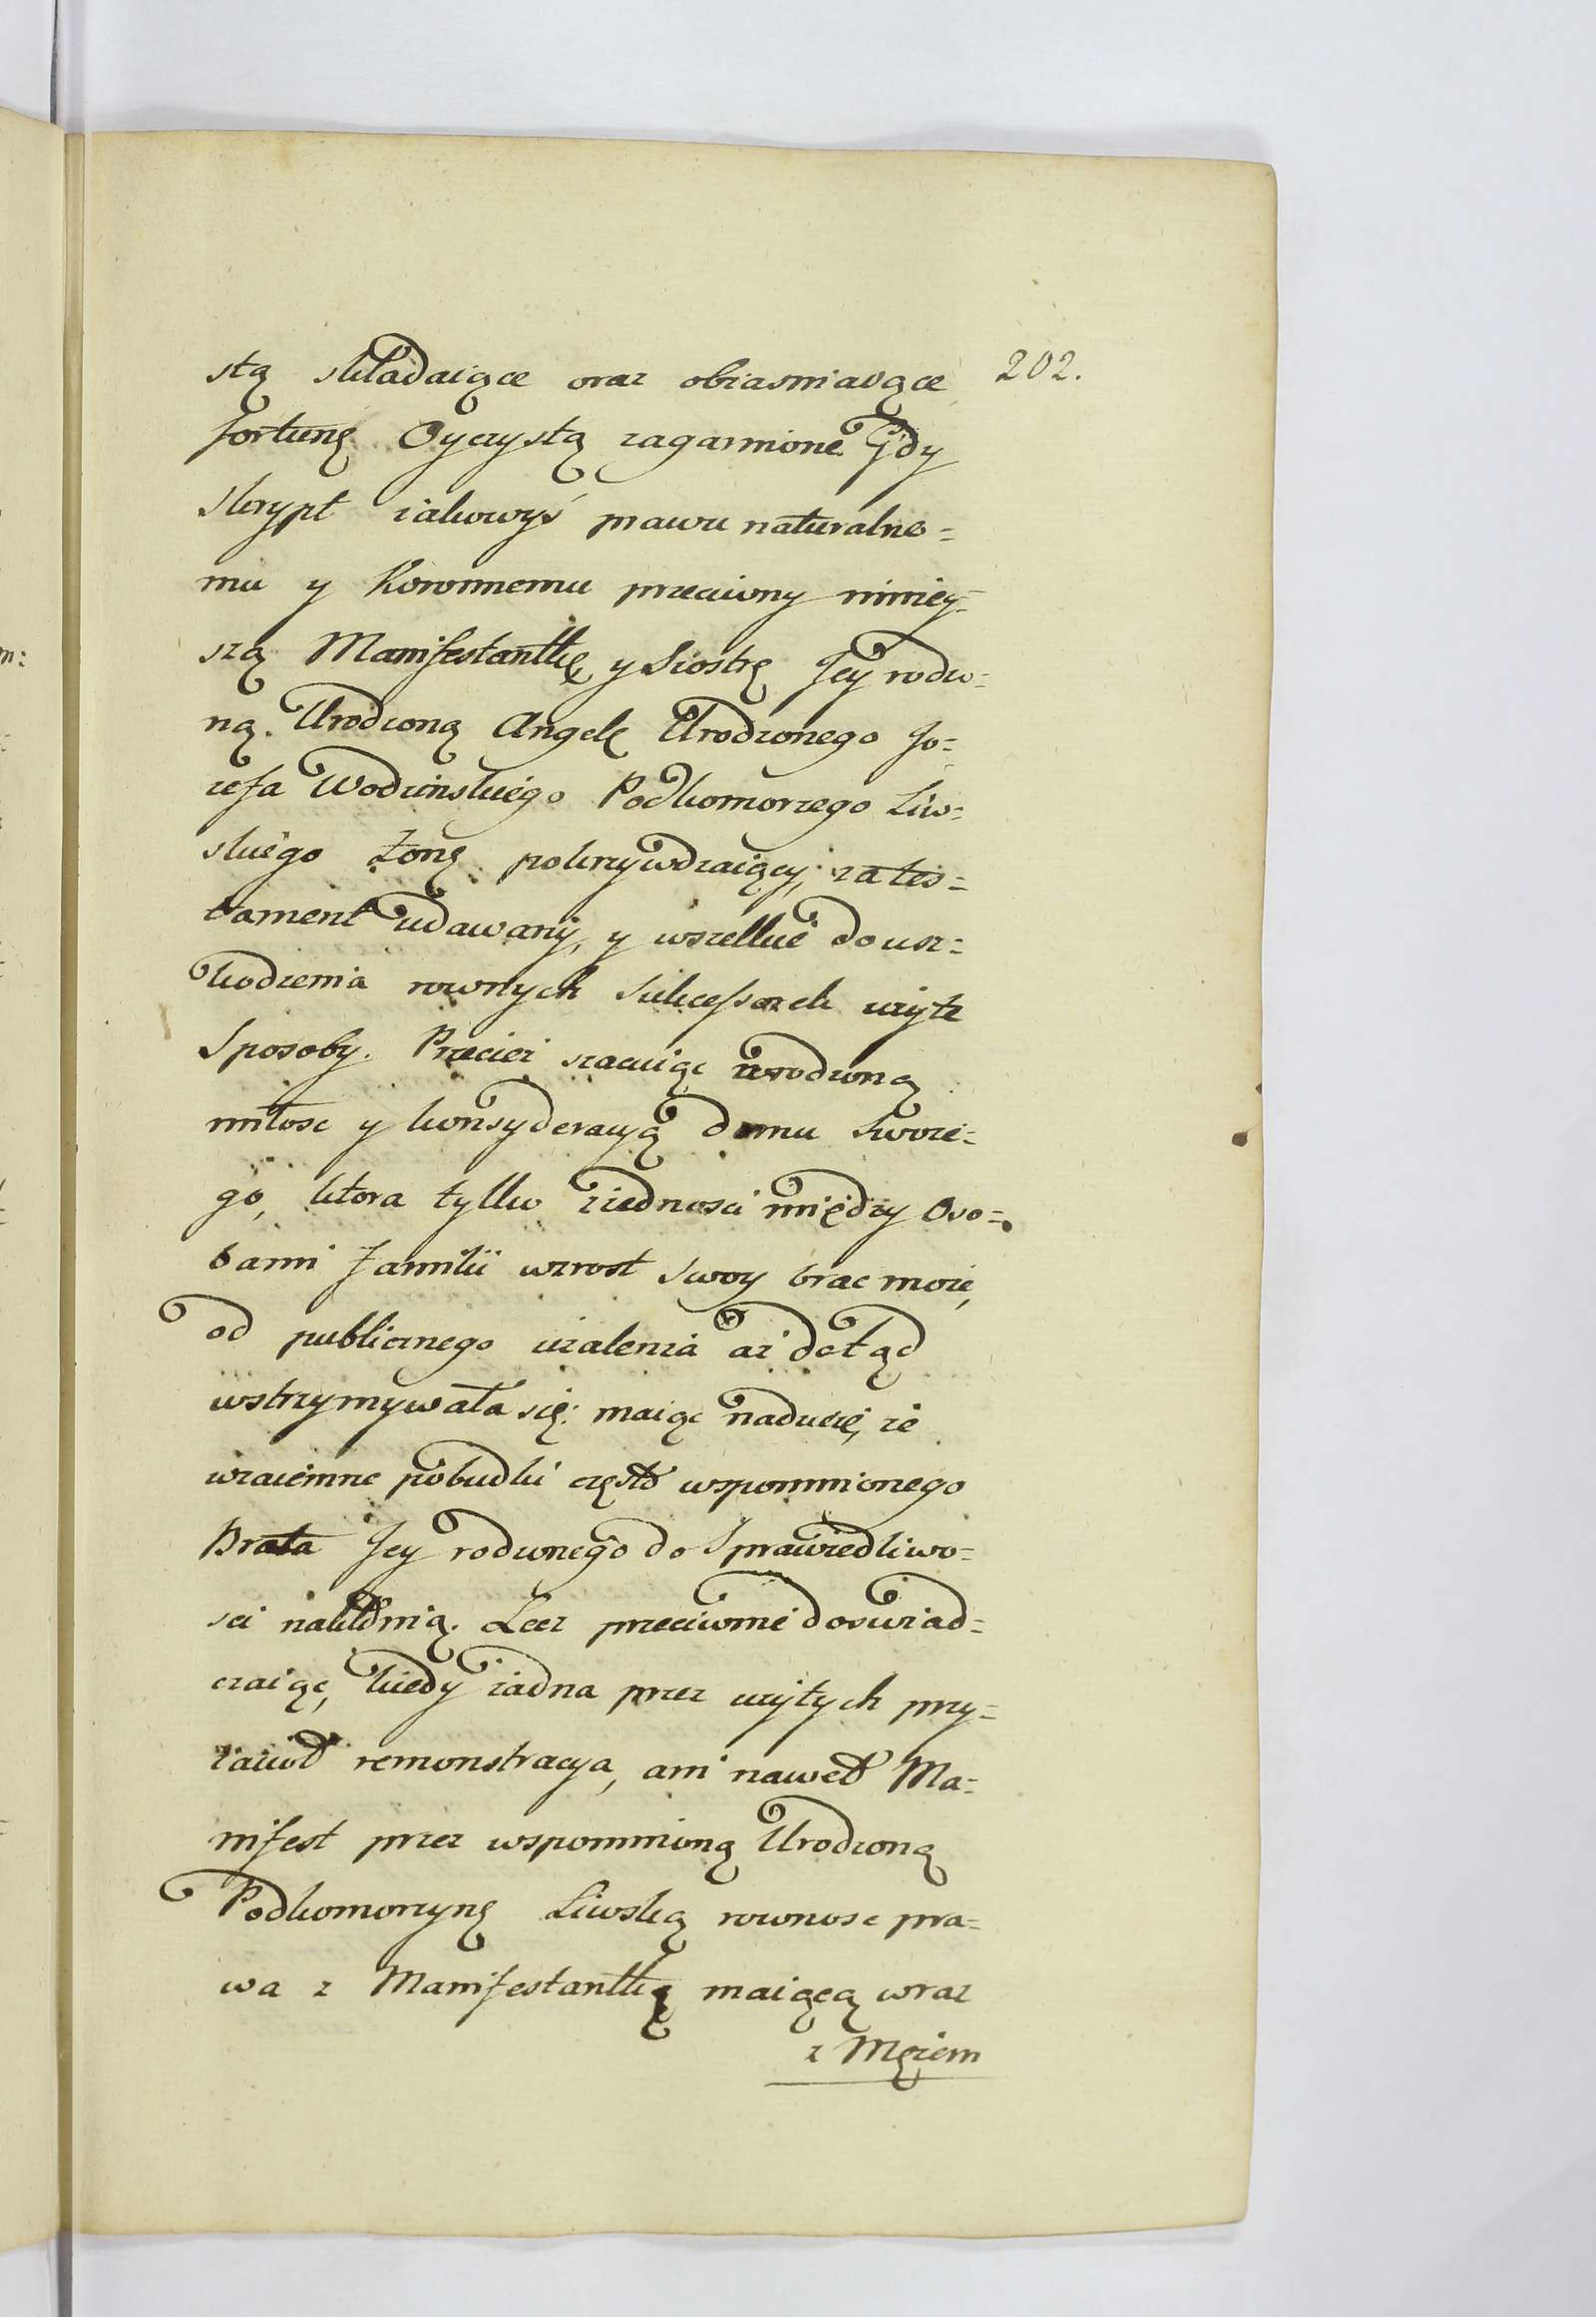 stą składaiące oraz obiasniaiące
202.
fortunę Oyczystą zagarnione. Gdy
skrypt iakowyś prawu naturalne=
mu y Koronnemu przeciwny niniey=
szą Manifestantkę y Siostrę Jey rodzo=
ną Urodzoną Angelę Urodzonego Jo=
zefa Wodzinskiego Podkomorzego Liw=
skiego Zonę pokrzywdzaiący, za tes=
tament udawany, y wszelkie do usz=
kodzenia rownych Sukcessorek użyte
Sposoby. Przecież szacuiąc wrodzoną
miłosc y konsyderacyą domu Swoie=
go, ktora tylko z iednosci między Oso=
bami Familii wzrost swoy brac może,
od publicznego użalenia aż dotąd
wstrzymywała się: maiąc nadzieię, że
wzaiemne pobudki często wspomnionego
Brata Jey rodzonego do Sprawiedliwo=
sci nakłonią. Lecz przeciwnie doswiad=
czaiąc, kiedy żadna przez użytych przy=
iacioł remonstracya, ani nawet Ma=
nifest przez wspomnioną Urodzoną
Podkomorzynę Liwską rownosc pra=
wa z Manifestantką maiącą wraz
z Mężem